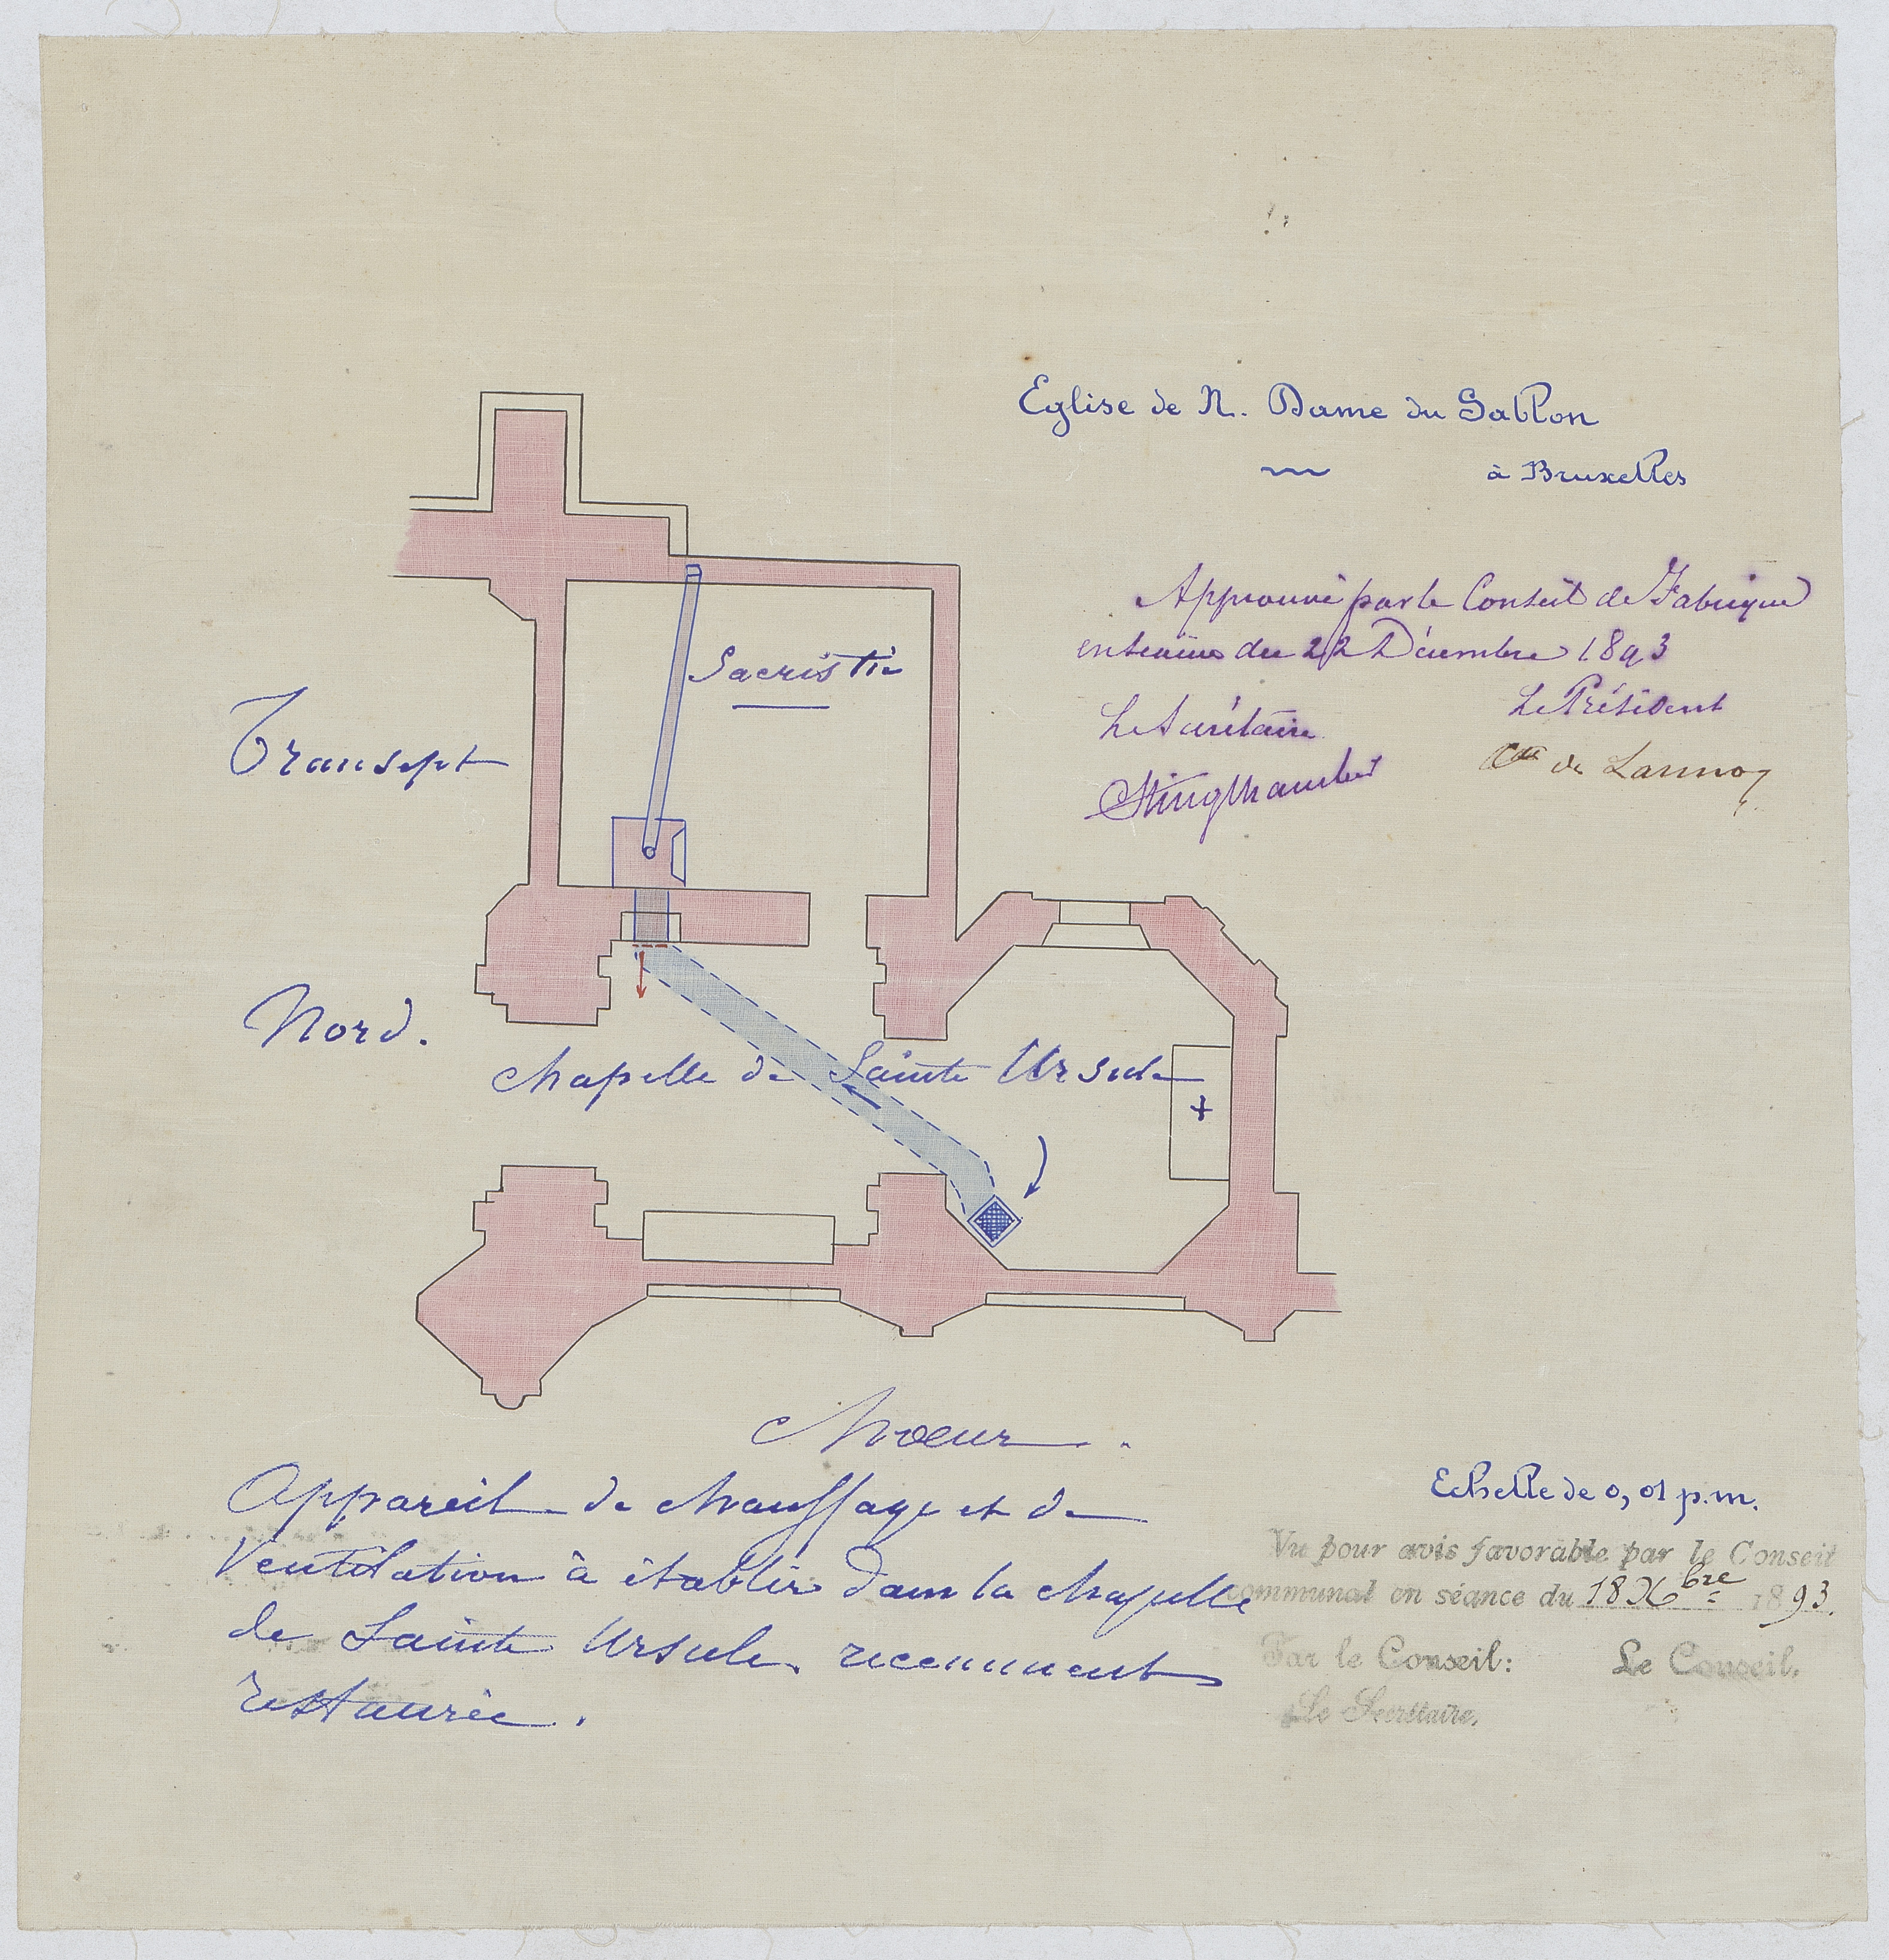 Eglise de N. Dame du Sablon
à Bruxelles
Approuvé par le Conseil de Fabrique
en séance du 22 Décembre 1893
Le Secrétaire
Le Président
Cte de Lannoy
Sacristie
Transept
Nord.
Chapelle de Sainte Ursule
Choeur.
Appareil de chauffage et de
Ventilation à établir dans la chapelle
de Sainte Ursule recemment
restaurée.
Echelle de 0,01 p.m.
Vu pour avis favorable par le Conseil
communal en séance du 18 Xbre 1893.
Par le Conseil:
Le Conseil,
Le Secrétaire,